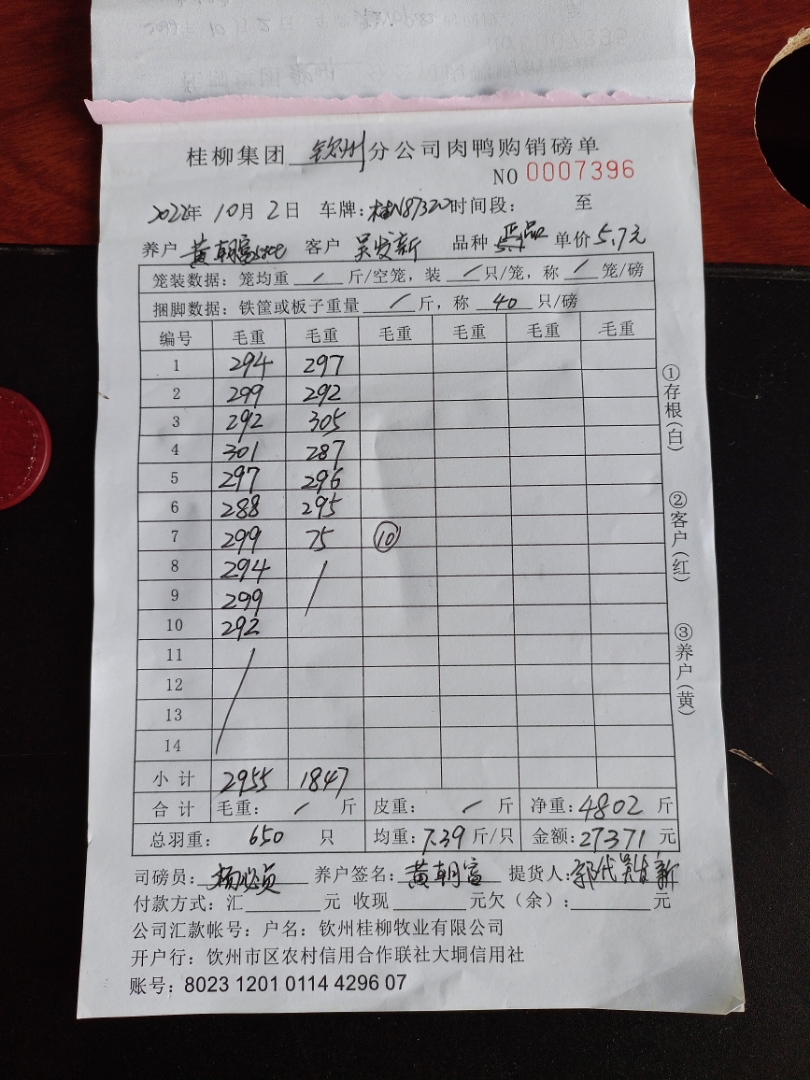 桂柳集团 钦州 分公司肉鸭购销磅单
NO 0007396
2022年 10月 2日 车牌:桂N87320 时间段: 至
养户 黄朝富 客户 吴发新 品种 单价 5.7元
笼装数据:笼均重 / 斤/空笼,装 / 只/笼,称 / 笼/磅
捆脚数据:铁筐或板子重量 / 斤,称 40 只/磅
编号 毛重 毛重 毛重 毛重 毛重 毛重
1 294 297
2 299 292
3 292 305
4 301 287
5 297 296
6 288 295
7 299 75 ⑩
8 294 /
9 299
10 292
11 /
12
13
14
小计 2955 1847
合计 毛重: / 斤 皮重: / 斤 净重:4802 斤
总羽重: 650 只 均重:7.39 斤/只 金额:27371 元
司磅员: 养户签名:黄朝富 提货人:郭代吴发新
付款方式:汇______元 收现______元欠(余):______元
公司汇款帐号:户名:钦州桂柳牧业有限公司
开户行:钦州市区农村信用合作联社大垌信用社
账号:8023 1201 0114 4296 07
①存根(白)
②客户(红)
③养户(黄)